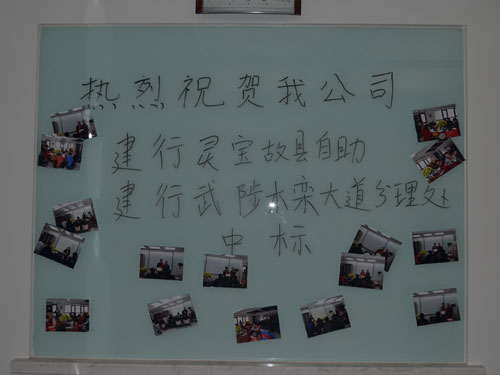 热烈祝贺我公司
建行灵宝故县自助
建行武陟木栾大道分理处
中标